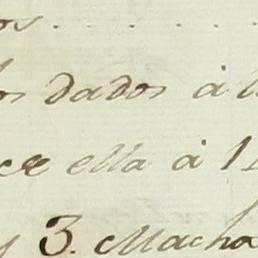 os . . . . . .
os dados à
ce ella à 1
y 3. Macho